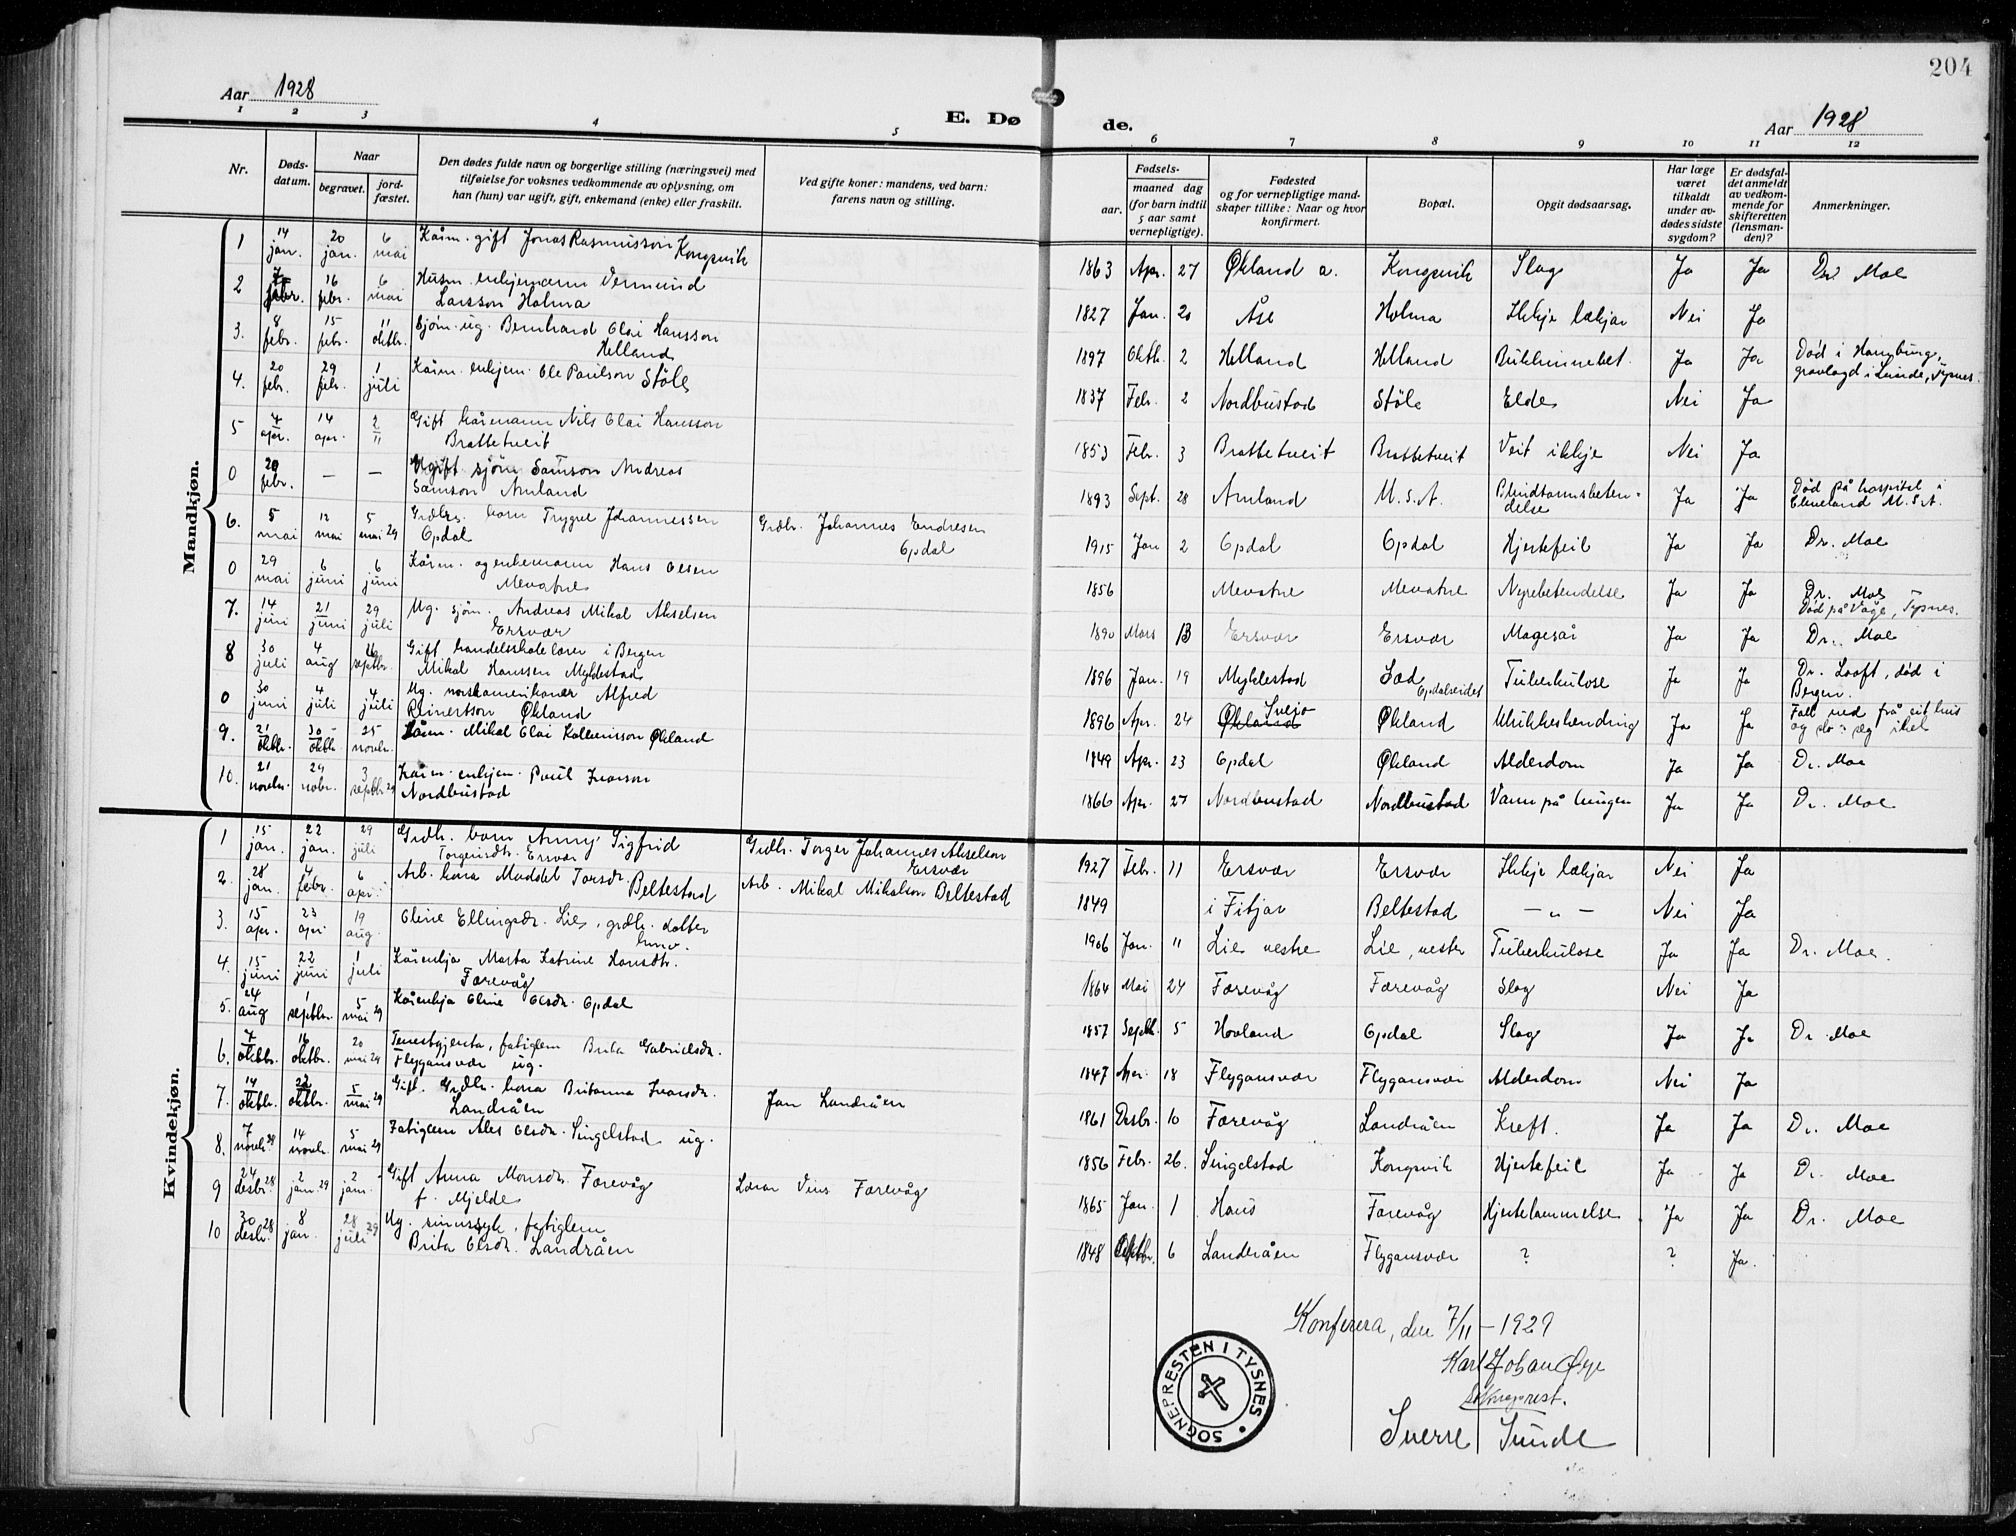 204
Aar 1928
E. Døde.
Aar 1928
1 2 3 4 5 6 7 8 9 10 11 12
Nr.
Døds-
datum.
Naar
begravet.
jord-
fæstet.
Den dødes fulde navn og borgerlige stilling (næringsvei) med
tilføielse for voksnes vedkommende av oplysning, om
han (hun) var ugift, gift, enkemand (enke) eller fraskilt.
Ved gifte koner: mandens, ved barn:
farens navn og stilling.
Fødsels-
aar.
maaned dag
(for barn indtil
5 aar samt
vernepligtige).
Fødested
og for vernepligtige mand-
skaper tillike: Naar og hvor
konfirmert.
Bopæl.
Opgit dødsaarsag.
Har læge
været
tilkaldt
under av-
dødes sidste
sygdom?
Er dødsfal-
det anmeldt
av vedkom-
mende for
skifteretten
(lensman-
den)?
Anmerkninger.
Mandkjøn.
1 14 jan. 20 jan. 6 mai Kårm. gift Jonas Rasmusson Kongsvik 1863 Apr. 27 Økland a. Kongsvik Slag Ja Ja Dr. Moe
2 7 febr. 16 febr. 6 mai Husm. enkjemann Vermund
Larsson Holma 1827 Jan. 20 Åse Holma Ikkje lækjar Nei Ja
3. 8 febr. 15 febr. 11 oktbr. Sjøm. ug. Bernhard Olai Hansson
Helland 1897 Oktb. 2 Helland Helland Bukhinnebet. Ja Ja Død i Hamburg,
gravlagd i Lunde, Tysnes.
4. 20 febr. 29 febr. 1 juli Kårm. enkjem. Ole Paulson Støle 1837 Febr. 2 Nordbustad Støle Elde Nei Ja
5 4 apr. 14 apr. 2/11 Gift kårmann Nils Olai Hansson
Brattetveit 1853 Febr. 3 Brattetveit Brattetveit Veit ikkje Nei Ja
0 20 febr. — — Ugift sjøm Samson Andreas
Samson Amland 1893 Sept. 28 Amland U.S.A. Blindtarmsbeten-
delse Ja Ja Død på hospital i
U.S.A.
6. 5 mai 12 mai 5 mai 29 Grdbr. barn Trygve Johannessen
Opdal Grdbr. Johannes Endresen
Opdal 1915 Jan 2 Opdal Opdal Hjertefeil Ja Ja Dr. Moe
0 29 mai 6 juni 6 juni Kårm. og enkemann Hans Olsen
Mevatne 1856 Mevatne Mevatne Nyrebetendelse Ja Ja Dr. Moe
Død på Våge, Tysnes.
7. 14 juni 21 juni 29 juli Ug. sjøm. Andreas Mikal Akselsen
Ersvær 1890 Mars 13 Ersvær Ersvær Magesår Ja Ja Dr. Moe
8 30 juli 4 aug septbr. Gift handelsskolelærer i Bergen
Mikal Hanssen Myklestad 1896 Jan. 19 Myklestad Opdalseidet Tuberkulose Ja Ja Dr. Looft, død i
Bergen.
0 30 juni 4 juli 4 juli Ug. norskamerikaner Alfred
Reinertson Økland 1896 Apr. 24 Økland Sveio Økland Ulukkeshending Ja Ja Fall ned frå eit hus
og slo seg ihel
9. 21 oktbr. 30 oktbr. 25 novbr. Kårm. Mikal Olai Kolbeinsson Økland 1849 Apr. 23 Opdal Økland Alderdom Ja Ja Dr. Moe
10. 21 novbr. 29 nobr. 3 septbr 29 Kårm. enkjem. Poul Ivarson
Nordbustad 1866 Apr. 27 Nordbustad Nordbustad Vann på lungen Ja Ja Dr. Moe
Kvindekjøn.
1 15 jan. 22 jan. 29 juli Grdb. barn Anny Sigfrid
Torgeirsdtr. Ersvær Grdbr. Torger Johannes Akselson
Ersvær 1927 Febr. 11 Ersvær Ersvær Ikkje lækjar Nei Ja
2. 28 jan. 4 febr. 6 apr. Arb. kona Maddel Torsdr. Beltestad Arb. Mikal Mikalson Beltestad 1849 i Fitjar Beltestad — „ — Nei Ja
3. 15 apr. 23 apr 19 aug. Oline Ellingsdr. Lie, grdbr. dotter 1906 Jan. 11 Lie vestre Lie, vestre Tuberkulose Ja Ja Dr. Moe.
4. 15 juni 22 juni 1 juli Kårenkja Marta Katrine Hansdtr.
Færevåg 1864 Mai 24 Færevåg Færevåg Slag Nei Ja
5. 24 aug 1 septbr. 5 mai 29 Kårenkja Oline Olsdr. Opdal 1857 Septb. 5 Hovland Opdal Slag Ja Ja Dr Moe
6. 7 oktbr. 16 oktbr. 20 mai 29 Tenestgjenta, fatiglem Brita Gabrielsdr.
Flygansvær ug. 1847 Apr. 18 Flygansvær Flygansvær Alderdom Nei Ja
7. 14 oktbr. 22 oktbr. 5 mai 29 Gift. Grdbr. kona Britanna Ivarsdr.
Landråen Jan Landråen 1861 Desbr. 10 Færevåg Landråen Kreft. Ja Ja Dr. Moe
8. 7 novbr. 28 14 novbr. 5 mai 29 Fatiglem Ales Olsdr. Singelstad ug. 1856 Febr. 26. Singelstad Kongsvik Hjertefeil Ja Ja Dr. Moe
9 24 desbr. 28 2 jan. 29 2 jan. Gift Anna Monsdr. Færevåg
f. Mjelde Lærar Færevåg 1865 Jan. 1 Haus Færevåg Hjertelammelse Ja Ja Dr. Moe
10 30 desbr. 28 8 jan. 28 juli 29 Ug. sinnssyk, fatiglem
Brita Olsdr. Landråen 1848 Oktbr. 6 Landråen Flygansvær ? ? Ja.
Konferera, den 7/11 - 1929
Karl Johan Øye
Sokneprest.
Sverre Sunde
SOGNEPRESTEN I TYSNES